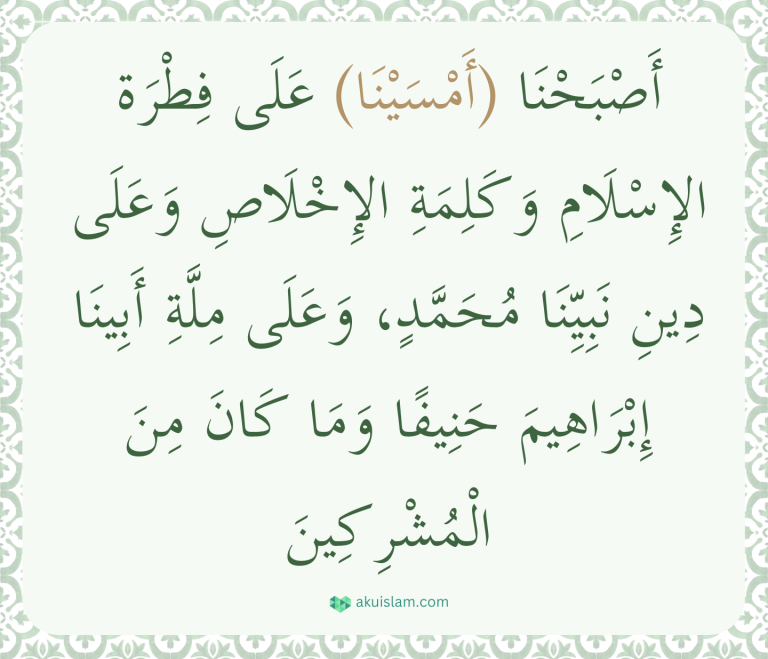 أَصْبَحْنَا (أَمْسَيْنَا) عَلَى فِطْرَة
الإِسْلَامِ وَكَلِمَةِ الإِخْلَاصِ وَعَلَى
دِينِ نَبِيِّنَا مُحَمَّدٍ، وَعَلَى مِلَّةِ أَبِينَا
إِبْرَاهِيمَ حَنِيفًا وَمَا كَانَ مِنَ
الْمُشْرِكِينَ
akuislam.com